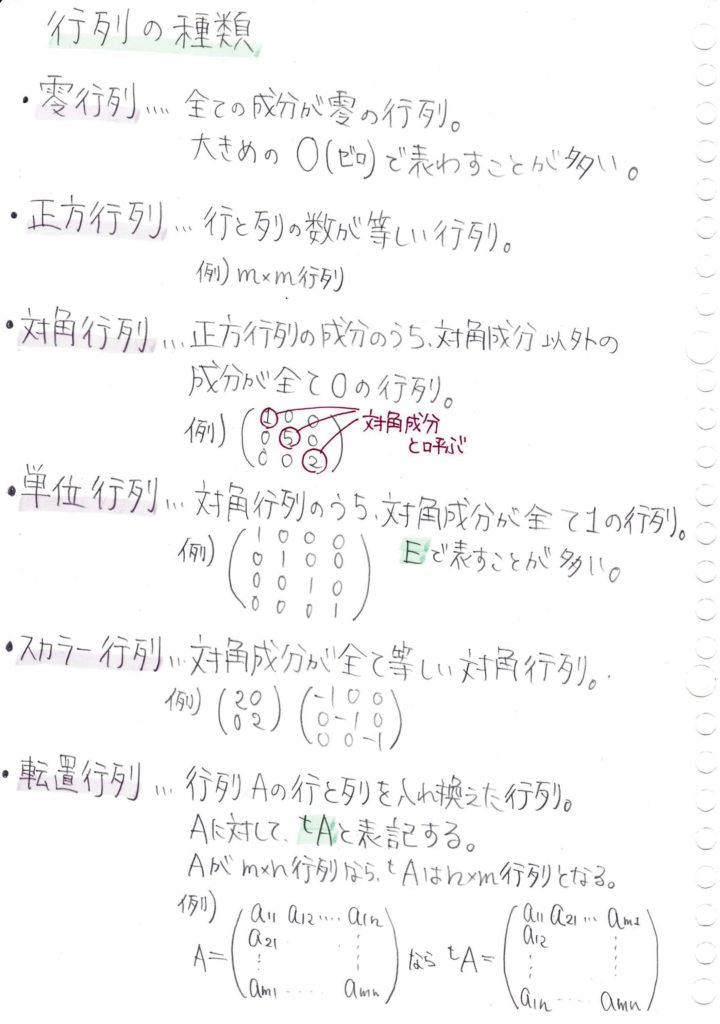 行列の種類
・零行列.... 全ての成分が零の行列。
大きめの O(ゼロ)で表わすことが多い。
・正方行列... 行と列の数が等しい行列。
例) m×m行列
・対角行列... 正方行列の成分のうち、対角成分以外の
成分が全て0の行列。
例) (1 0 0
0 5 0
0 0 2)
対角成分
と呼ぶ
・単位行列... 対角行列のうち、対角成分が全て1の行列。
例) (1 0 0 0
0 1 0 0
0 0 1 0
0 0 0 1)
Eで表すことが多い。
・スカラー行列... 対角成分が全て等しい対角行列。
例) (2 0
0 2)
(-1 0 0
0 -1 0
0 0 -1)
・転置行列... 行列Aの行と列を入れ換えた行列。
Aに対して、ᵗAと表記する。
Aがm×n行列なら、ᵗAはn×m行列となる。
例)
A=(a11 a12 .... a1n
a21 ⋮
⋮ ⋮
am1 ..... amn)
なら ᵗA=(a11 a21 ... am1
a12 ⋮
⋮ ⋮
a1n ..... amn)